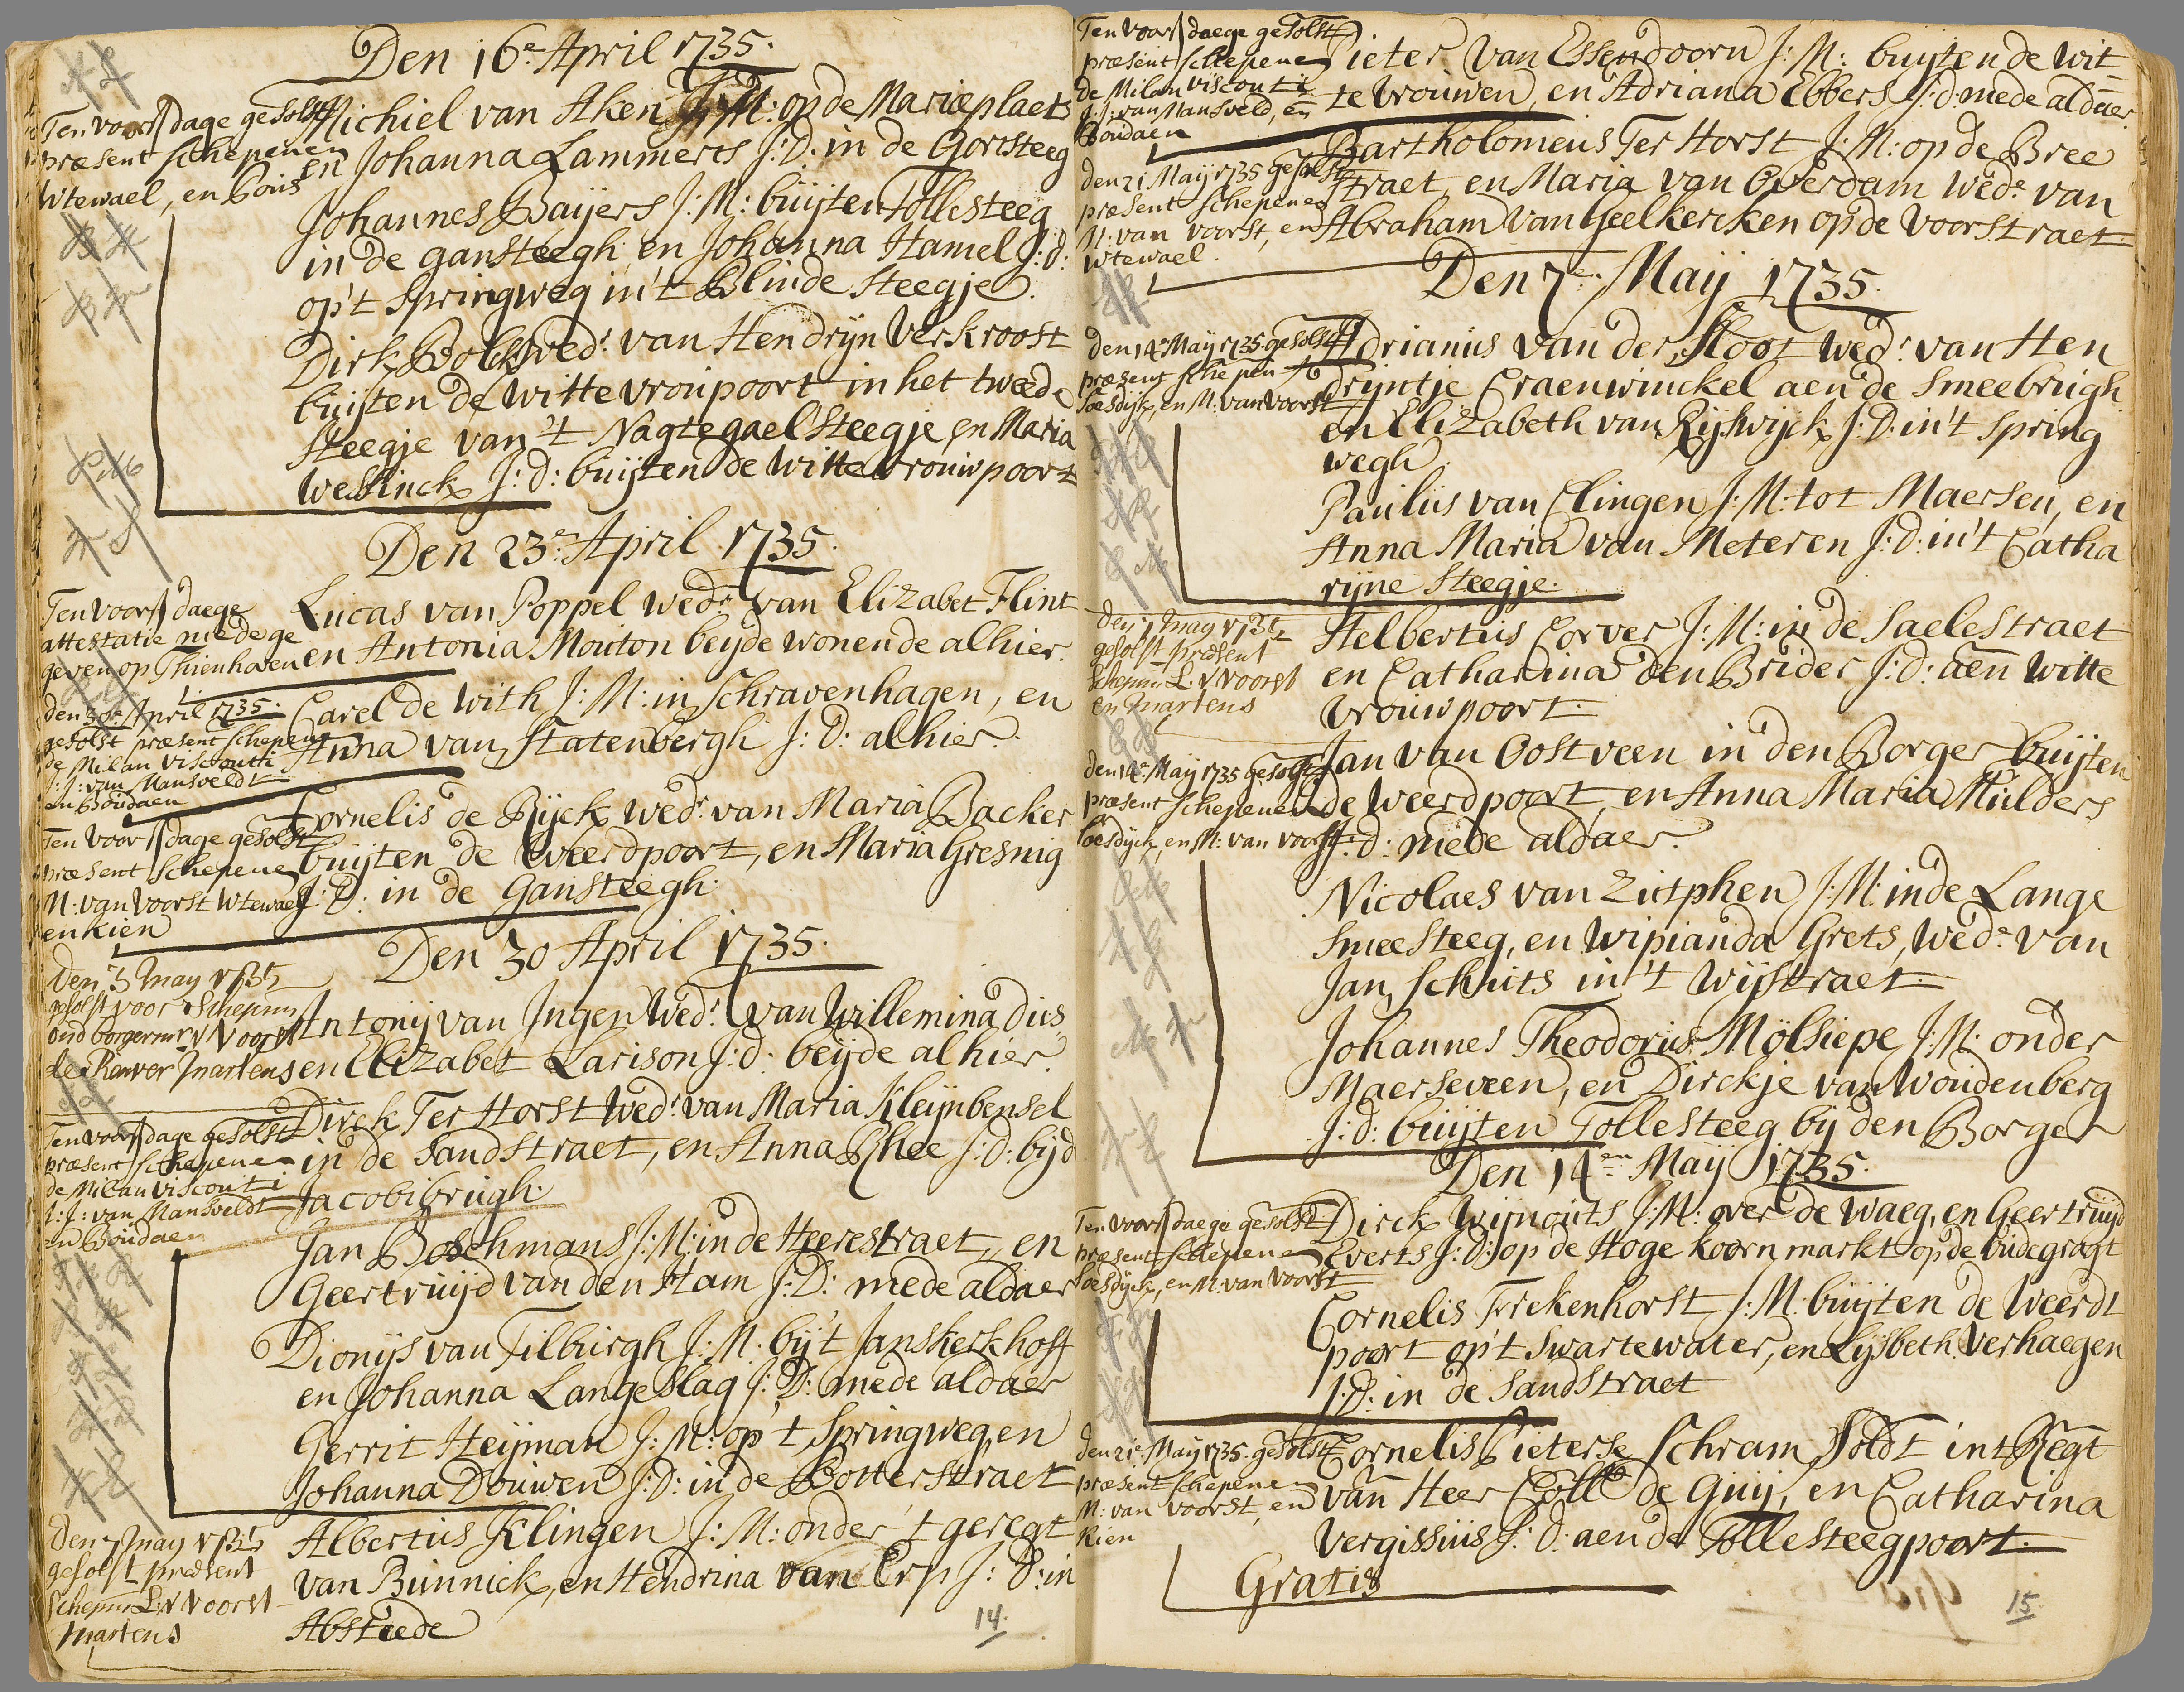 Den 16e April 1735.
Ten voors dage gesolst
præsent schepenen
Wtewael, en Bois
Michiel van Aken J: M: op de Marieplaets
en Johanna Lammerts J: D: in de Gortsteeg
Johannes Baijers J: M: buijten Tollesteeg
in de gansteegh en Johanna Hamel J: d:
op't springweg in't Blinde steegje.
Dirk Bolk wedr van Hendrijn Verkroost
buijten de witte vroupoort in het tweede
steegje van 't Nagtegael steegje, en Maria
Weslinck J: d: buijten de witte vrouwpoort
Den 23e April 1735.
Ten voors daege
attestatie mede ge
geven op Thienhoven
Lucas van Poppel wedr van Elizabet Flint
en Antonia Mouton beijde wonende alhier.
den 30e April 1735.
gesolst præsent schepene
de Milan Visconti
J: J: van Mansveldt
en Boudaen
Carel de With J: M: in schravenhagen, en
Anna van Statenbergh J: D: alhier.
Ten voors dage gesolst
præsent schepene
M: van Voorst Wtewael
en Kien
Cornelis de Rijck wedr van Maria Backer
buijten de weerdpoort, en Maria Gresnig
J: D: in de Gansteegh.
Den 30 April 1735.
Den 3 may 1735
gesolst voor schepenn
oud borgermr V Voorst
de Ranver martens
Antonij van Ingen Wedr van Willemina dies
en Elizabet Larison J: d: beijde alhier.
Ten voors dage gesolst
præsent schepene
de Milan Visconti
J: J: van Mansveldt
en Boudaen
Dirck Ter Horst Wedr van Maria Kleijnbensel
in de sandstraet, en Anna Rhee J: D: bijd
Jacobibrugh.
Jan Boschmans J: M: in de Heerestraet, en
Geertruijd van den Ham J: D: mede aldaer
Dionijs van Tilburgh J: M: bij't Janskerkhoff
en Johanna Langeslag J: D: mede aldaer
Gerrit Heijman J: M: op 't springweg, en
Johanna Douwen J: D: in de Botterstraet
Den 7 may 1735
gesolst present
schepnn L: V Voorst
martens
Albertus Klingen J: M: onder 't geregt
van Bunnick, en Hendrina van Erp J: D: in
Absteede
14.
Ten voors daege gesolst
præsent schepene
de Milan Visconti
J: J: van Mansveld, en
Boudaen
Pieter van Essendoorn J: M: buijten de wit=
te vrouwen, en Adriana Ebbers J: d: mede aldaer.
den 21 Maij 1735 gesolst
præsent schepenen
M: van voorst, en
Wtewael.
Bartholomeus Ter Horst J: M: op de Bree
straet, en Maria van Overdam wede van
Abraham van Geelkercken op de voorstraet.
Den 7e Maij 1735.
den 14e Maij 1735 gesolst
præsent schepen
Soesdijk, en M: van voorst
Adrianus van der Sloot wedr van Hen
drijntje Craenwinckel aen de smeebrugh
en Elizabeth van Rijswijck J: D: in't spring
wegh.
Paulus van Clingen J: M: tot Maersen, en
Anna Maria van Meteren J: D: in't Catha
rijne steegje.
Den 7 may 1735
gesolst present
schepnn L: V Voorst
en martens
Helbertus Corver J: M: in de Saelestraet
en Catharina den Brider J: d: aen witte
vrouwpoort.
den 14e Maij 1735 gesolst
præsent schepenen
Soesdijck, en M: van voorst
Jan van Oostveen in den Borger buijten
de weerdpoort, en Anna Maria Mulders
J: d: mede aldaer.
Nicolaes van Zutphen J: M: in de Lange
smeesteeg, en Wipianda Grets, Wede van
Jan Schuts in 't wijstraet.
Johannes Theodorus Mölsiepe J: M: onder
Maerseveen, en Dirckje van Woudenberg
J: d: buijten Tollesteeg bij den Borger
Den 14en Maij 1735.
Ten voors daege gesolst
præsent schepene
Soesdijck, en M: van voorst
Dirck Wijnouts J: M: over de waeg, en Geertruijd
Everts J: D: op de Hoge koornmarkt op de oudegragt
Cornelis Frekenhorst J: M: buijten de weerdt
poort op't swartewater, en Lijsbeth Verhaegen
J: D: in de sandstraet
den 21e Maij 1735 gesolst
præsent schepene
M: van voorst, en
Kien
Cornelis Pieterse Schram soldt int Regt
van Heer Coll de Guij, en Catharina
Vergissuis J: D: aen de Tollesteegpoort.
Gratis
15